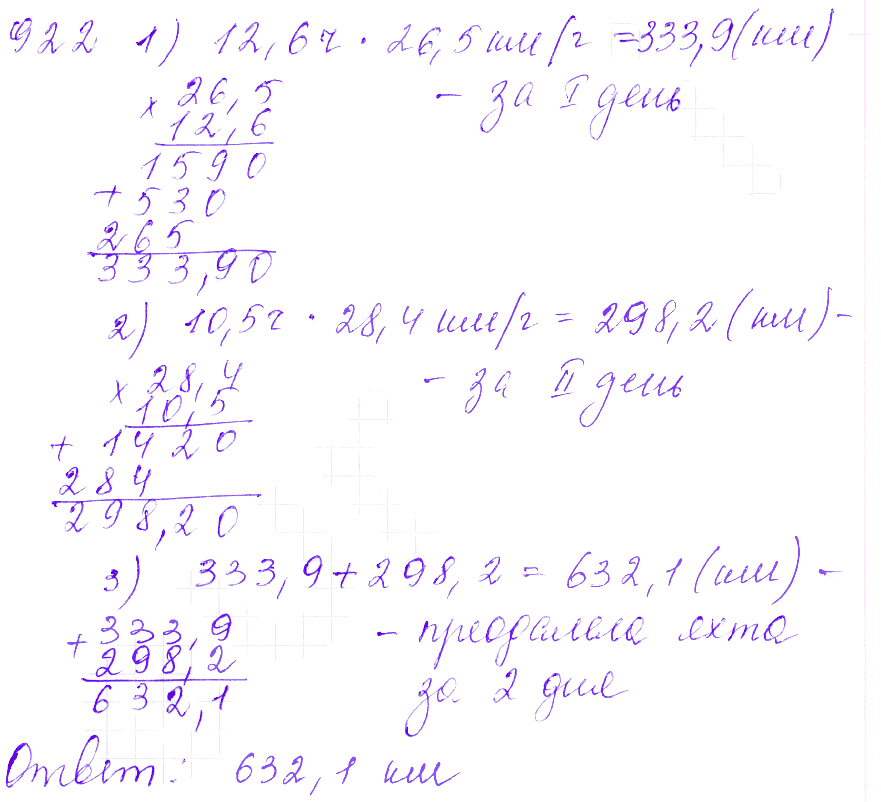 922 1) 12,6ч · 26,5 км/ч = 333,9 (км)
- за I день
× 26,5
12,6
1590
+ 530
265
333,90
2) 10,5ч · 28,4 км/ч = 298,2 (км) -
- за II день
× 28,4
10,5
+ 1420
284
298,20
3) 333,9 + 298,2 = 632,1 (км) -
+ 333,9
- преодолела яхта
298,2
за 2 дня
632,1
Ответ: 632,1 км